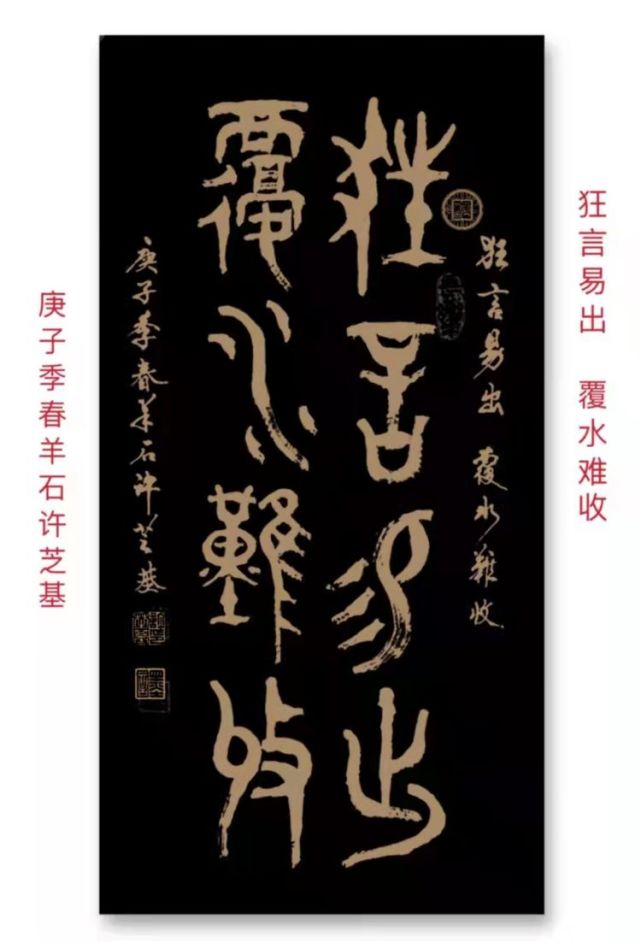 狂言易出 覆水难收
狂言易出 覆水難收
狂言易出
覆水難收
庚子季春羊石许芝基
庚子季春羊石许芝基